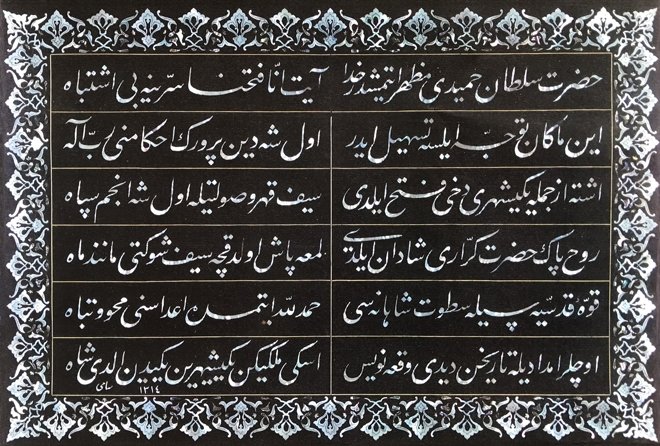 حضرت سلطان حمیدی مظهر ایتمشدر خدا آیت انا فتحنا سرینه بی اشتباه
این ماکان توجه ایلسه تسهیل ایدر اول شه دین پرورک احکامنی رب آله
اشته از جمله یکیشهری دخی فتح ایلدی سیف قهر و صولتیله اول شه انجم سپاه
روح پاک حضرت کراری شادان ایلدی لمعه پاش اولدقجه سیف شوکتی مانند ماه
قوۀ قدسیه سیله سطوت شاهانه سی حمد لله ایتمده اعداسنی محو و تباه
اوچلر امدادیله تاریخن دیدی وقعه نویس اسکی ملکیکن یکیشهرین یکیدن الدی شاه
سامی ١٣١٤